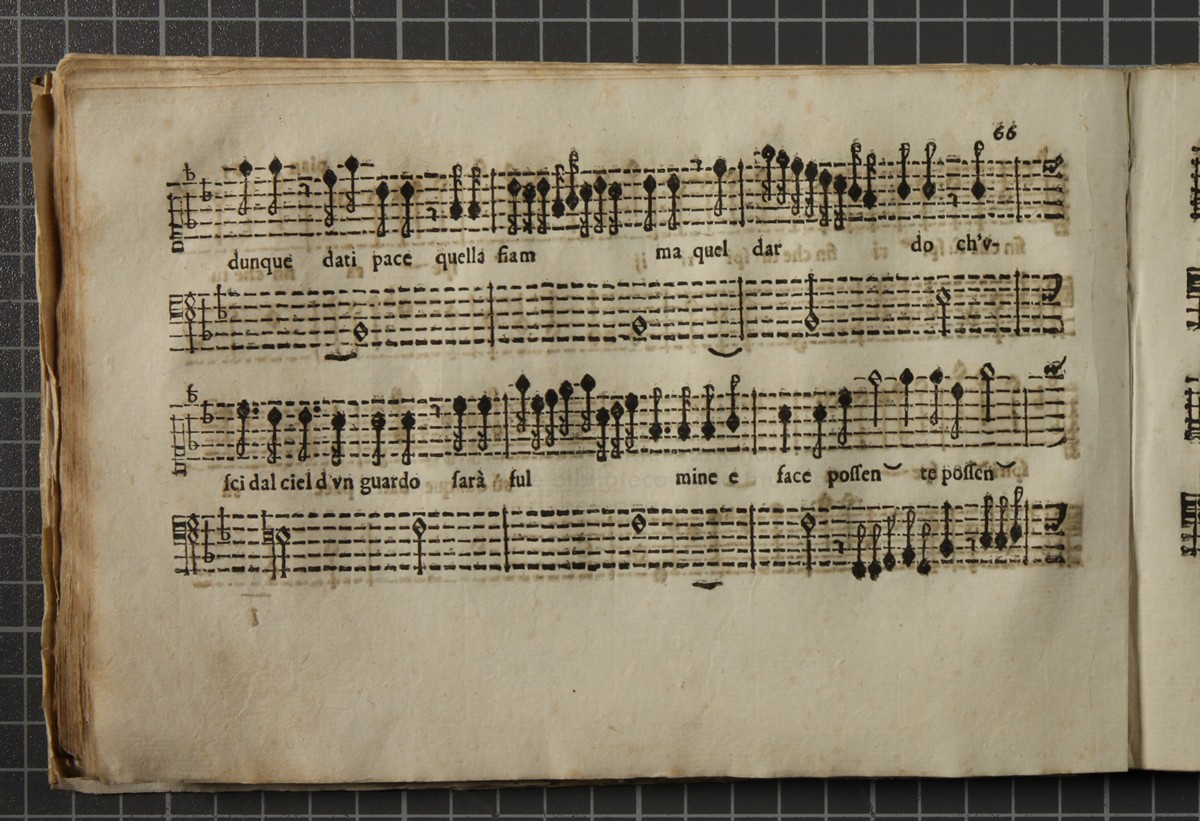 66
dunque dati pace quella fiam ma quel dar do ch'v-
ſci dal ciel d vn guardo ſarà ful mine e face poſſen te poſſen